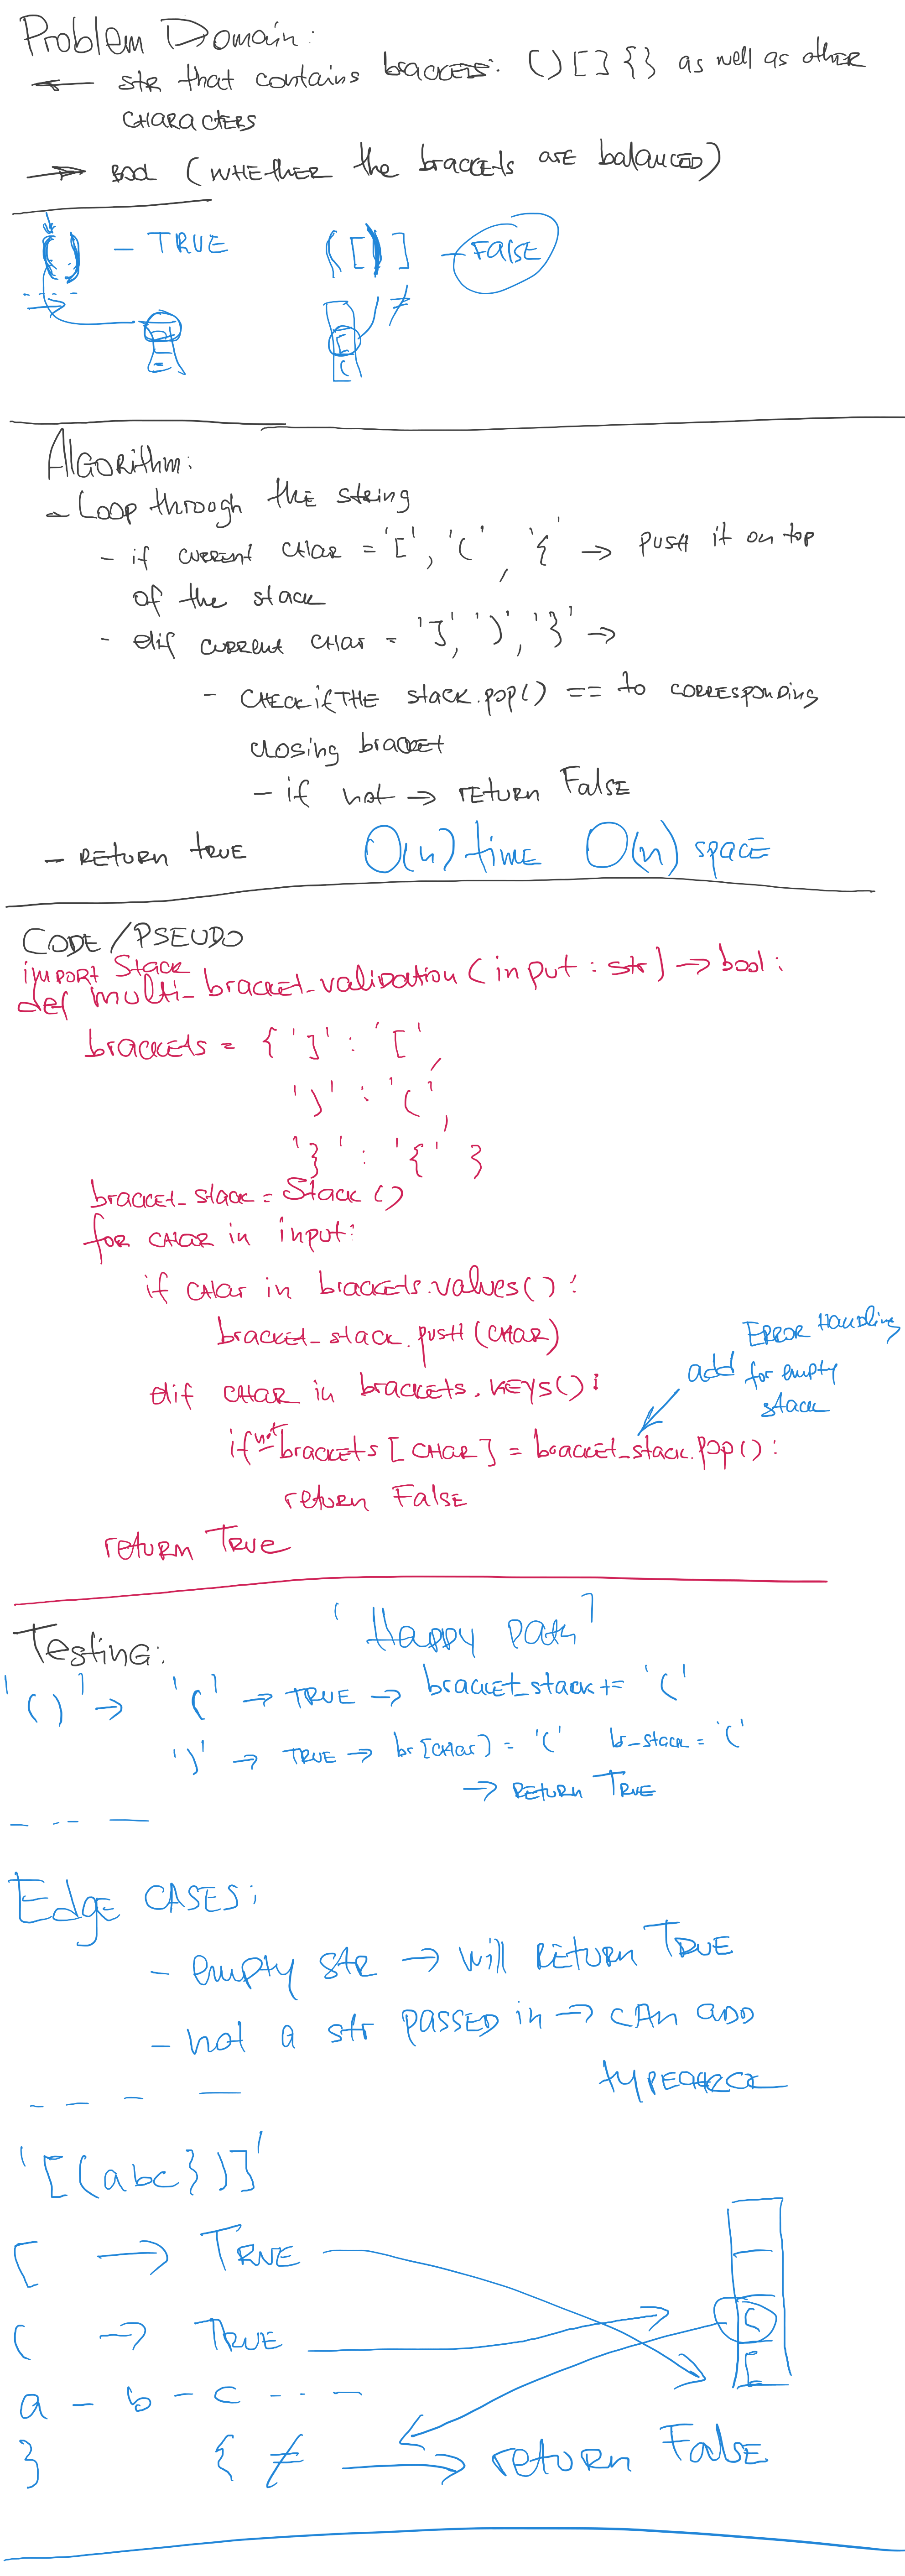 Problem Domain:
← str that contains brackets: ( ) [ ] { } as well as other
characters
→ bool (whether the brackets are balanced)
( ) - TRUE
( [ ) ] - False
[
(
≠
Algorithm:
- Loop through the string
- if current char = '[', '(', '{' → push it on top
of the stack
- elif current char = ']', ')', '}' →
- check if the stack.pop() == to corresponding
closing bracket
- if not → return False
- return true
O(n) time O(n) space
CODE/PSEUDO
import Stack
def multi_bracket_validation (input : str) → bool :
brackets = { ']' : '[',
')' : '(',
'}' : '{' }
bracket_stack = Stack ()
for char in input:
if char in brackets.values() :
bracket_stack.push (char)
elif char in brackets.keys() :
if not brackets [char] = bracket_stack.pop() :
add Error Handling
for empty
stack
return False
return True
Testing:
'Happy path'
'( )' → '(' → TRUE → bracket_stack += '('
')' → TRUE → br[char] = '(' br_stack = '('
→ return True
Edge CASES:
- empty str → will return True
- not a str passed in → can add
typecheck
'[(abc})]'
[ → True
( → True
(
[
a - b - c - - -
} { ≠ → return False